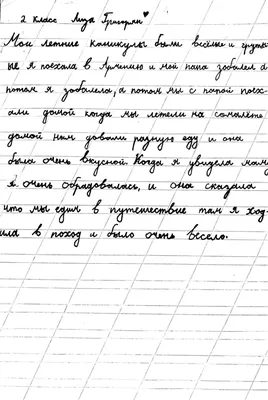 2 класс Лиза Григорян
Мои летние каникулы были весёлые и грустн
ые я поехала в Армению и мой папа заболел а
потом я заболела, а потом мы с папой поех-
али домой когда мы летели на самолёте
домой нам довали разную еду и она
была очень вкусной. Когда я увидела маму
я очень обрадовалась, и она сказала
что мы едим в путешествие там я ход-
ила в поход и было очень весело.